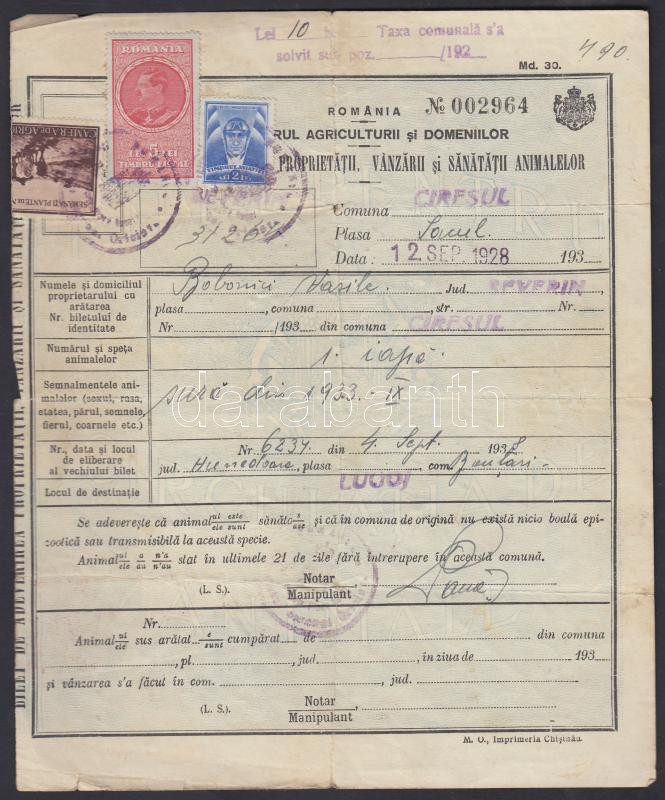 Lei 10 Taxa comunală s'a
solvit sub poz. /192
490.
Md. 30.
ROMANIA
5 LEI LEI 5
TIMBRU FISCAL
TIMBRUL AVIAȚIEI
LEI 2 LEI
CAMERA DE AGRIC
SEMĂNAȚI PLANTE DE N
ROMÂNIA № 002964
RUL AGRICULTURII și DOMENIILOR
PROPRIETĂȚII, VÂNZĂRII și SĂNĂTĂȚII ANIMALELOR
Comuna CIREȘUL
Plasa Sacul
Data: 12 SEP. 1928 193
Numele și domiciliul proprietarului cu arătarea Nr. biletului de identitate
Bobonici Vasile Jud. SEVERIN
plasa, comuna, str. Nr.
Nr /193 din comuna CIREȘUL
Numărul și speța animalelor
1. iapă
Semnalmentele animalelor (sexul, rasa, etatea, părul, semnele, fierul, coarnele etc.)
sură din 1933. - IX
Nr., data și locul de eliberare al vechiului bilet
Nr 6234 din 4 Sept. 1938
jud. Hunedoara, plasa, com. Bouțari -
Locul de destinație
LUGOJ
Se adeverește că animal ul este / ele sunt sănătos / ase și că în comuna de origină nu există nicio boală epi-
zootică sau transmisibilă la această specie.
Animal ul / ele a / au n'a / n'au stat în ultimele 21 de zile fără întrerupere în această comună.
(L. S.) Notar
Manipulant
Nr.
Animal ul / ele sus arătat e / sunt cumpărat de din comuna
, pl., jud., în ziua de 193
și vânzarea s'a făcut în com., jud.
(L. S.) Notar
Manipulant
M. O., Imprimeria Chișinău.
BILET DE ADEVERIREA PROPRIETĂȚII, VÂNZĂRII ȘI SĂNĂTĂȚII
darabanth